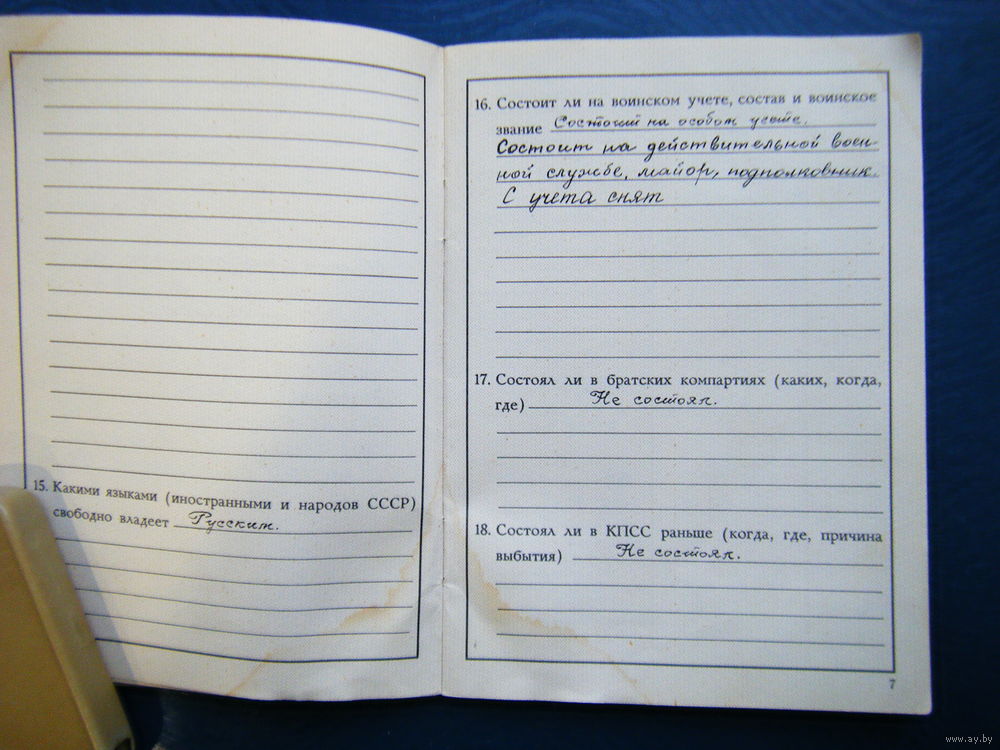 15. Какими языками (иностранными и народов СССР)
свободно владеет Русским.
16. Состоит ли на воинском учете, состав и воинское
звание Состоит на особом учете.
Состоит на действительной воен-
ной службе, майор, подполковник.
С учета снят
17. Состоял ли в братских компартиях (каких, когда,
где) Не состоял.
18. Состоял ли в КПСС раньше (когда, где, причина
выбытия) Не состоял.
7
www.ay.by